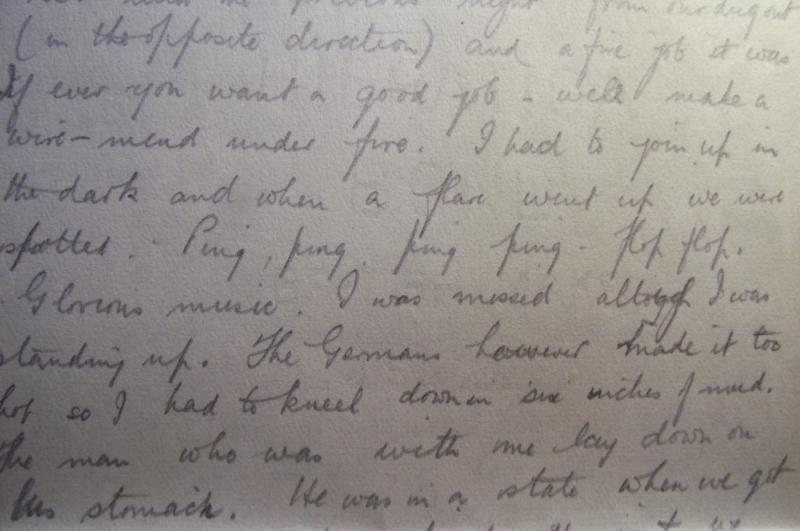 the previous night from our dugout
(in the opposite direction) and a fine job it was
If ever you want a good job - well make a
wire-mend under fire. I had to join up in
the dark and when a flare went up we were
spotted. - Ping, ping, ping ping - flop flop.
Glorious music. I was missed altough I was
standing up. The Germans however made it too
hot so I had to kneel down in six inches of mud.
The man who was with me lay down on
his stomach. He was in a state when we got